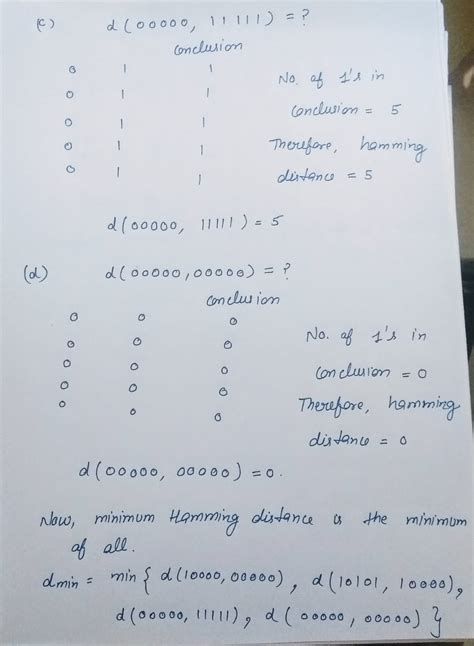 (c) d(00000, 11111) = ?
conclusion
0 1 1
0 1 1
0 1 1
0 1 1
0 1 1
No. of 1's in
conclusion = 5
Therefore, hamming
distance = 5
d(00000, 11111) = 5
(d) d(00000, 00000) = ?
conclusion
0 0 0
0 0 0
0 0 0
0 0 0
0 0 0
No. of 1's in
conclusion = 0
Therefore, hamming
distance = 0
d(00000, 00000) = 0.
Now, minimum Hamming distance is the minimum
of all.
dmin = min { d(10000, 00000), d(10101, 10000),
d(00000, 11111), d(00000, 00000) }